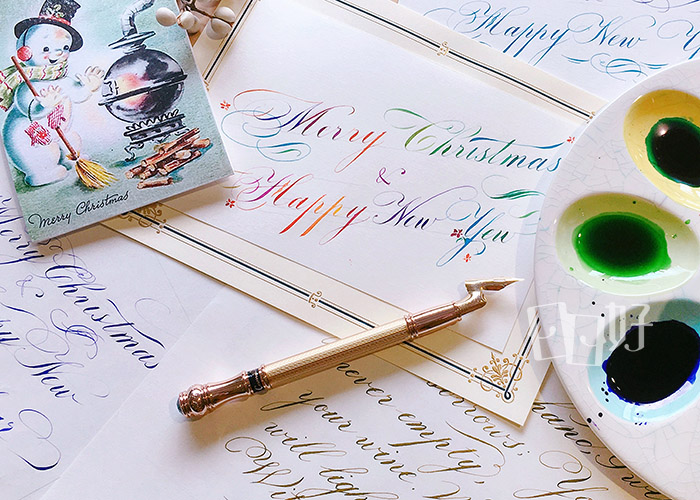 Happy New Y
Merry Christmas
&
Happy New
Merry Christmas
Merry Christmas
&
ppy New
never empty,
your wine.
will ligh